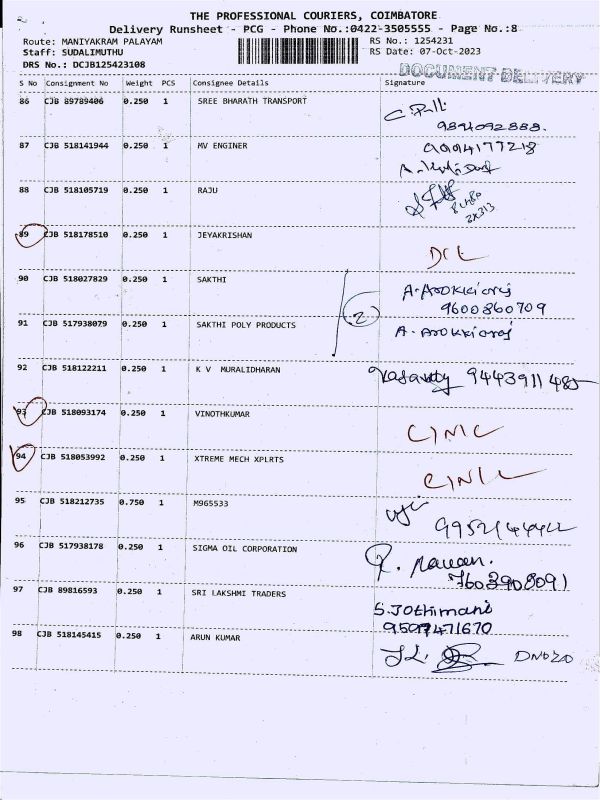 THE PROFESSIONAL COURIERS, COIMBATORE
Delivery Runsheet - PCG - Phone No.:0422-3505555 - Page No.:8
Route: MANIYAKRAM PALAYAM RS No.: 1254231
Staff: SUDALIMUTHU RS Date: 07-Oct-2023
DRS No.: DCJB125423108 DOCUMENT DELIVERY
S No Consignment No Weight PCS Consignee Details Signature
86 CJB 89789406 0.250 1 SREE BHARATH TRANSPORT
9894092888.
87 CJB 518141944 0.250 1 MV ENGINER 9994177218
88 CJB 518105719 0.250 1 RAJU
89 CJB 518178510 0.250 1 JEYAKRISHAN
90 CJB 518027829 0.250 1 SAKTHI A. Arokkiaraj
9600860709
2
91 CJB 517938079 0.250 1 SAKTHI POLY PRODUCTS A. Arokkiaraj
92 CJB 518122211 0.250 1 K V MURALIDHARAN 9443911485
93 CJB 518093174 0.250 1 VINOTHKUMAR
94 CJB 518053992 0.250 1 XTREME MECH XPLRTS
95 CJB 518212735 0.750 1 M965533
9952144422
96 CJB 517938178 0.250 1 SIGMA OIL CORPORATION
7603908091
97 CJB 89816593 0.250 1 SRI LAKSHMI TRADERS S. Jothimani
9597471670
98 CJB 518145415 0.250 1 ARUN KUMAR